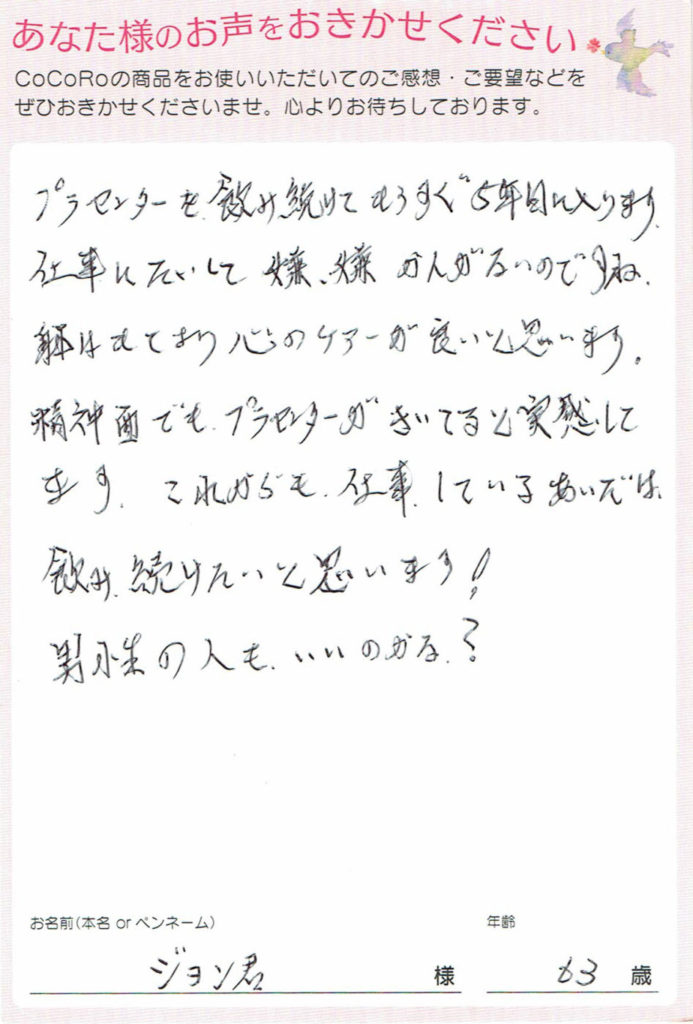 あなた様のお声をおきかせください
CoCoRoの商品をお使いいただいてのご感想・ご要望などを
ぜひおきかせくださいませ。心よりお待ちしております。
プラセンターを飲み続けてもうすぐ5年目に入ります
仕事にたいして 嫌、嫌 かんがないのですね、
躰はもとより心のケアーが良いと思います。
精神面でも、プラセンターがきいてると実感して
ます。これからも、仕事、しているあいだは、
飲み、続けたいと思います!
男性の人も、いいのかな、?
お名前(本名 or ペンネーム)
年齢
ジョン君 様
63 歳